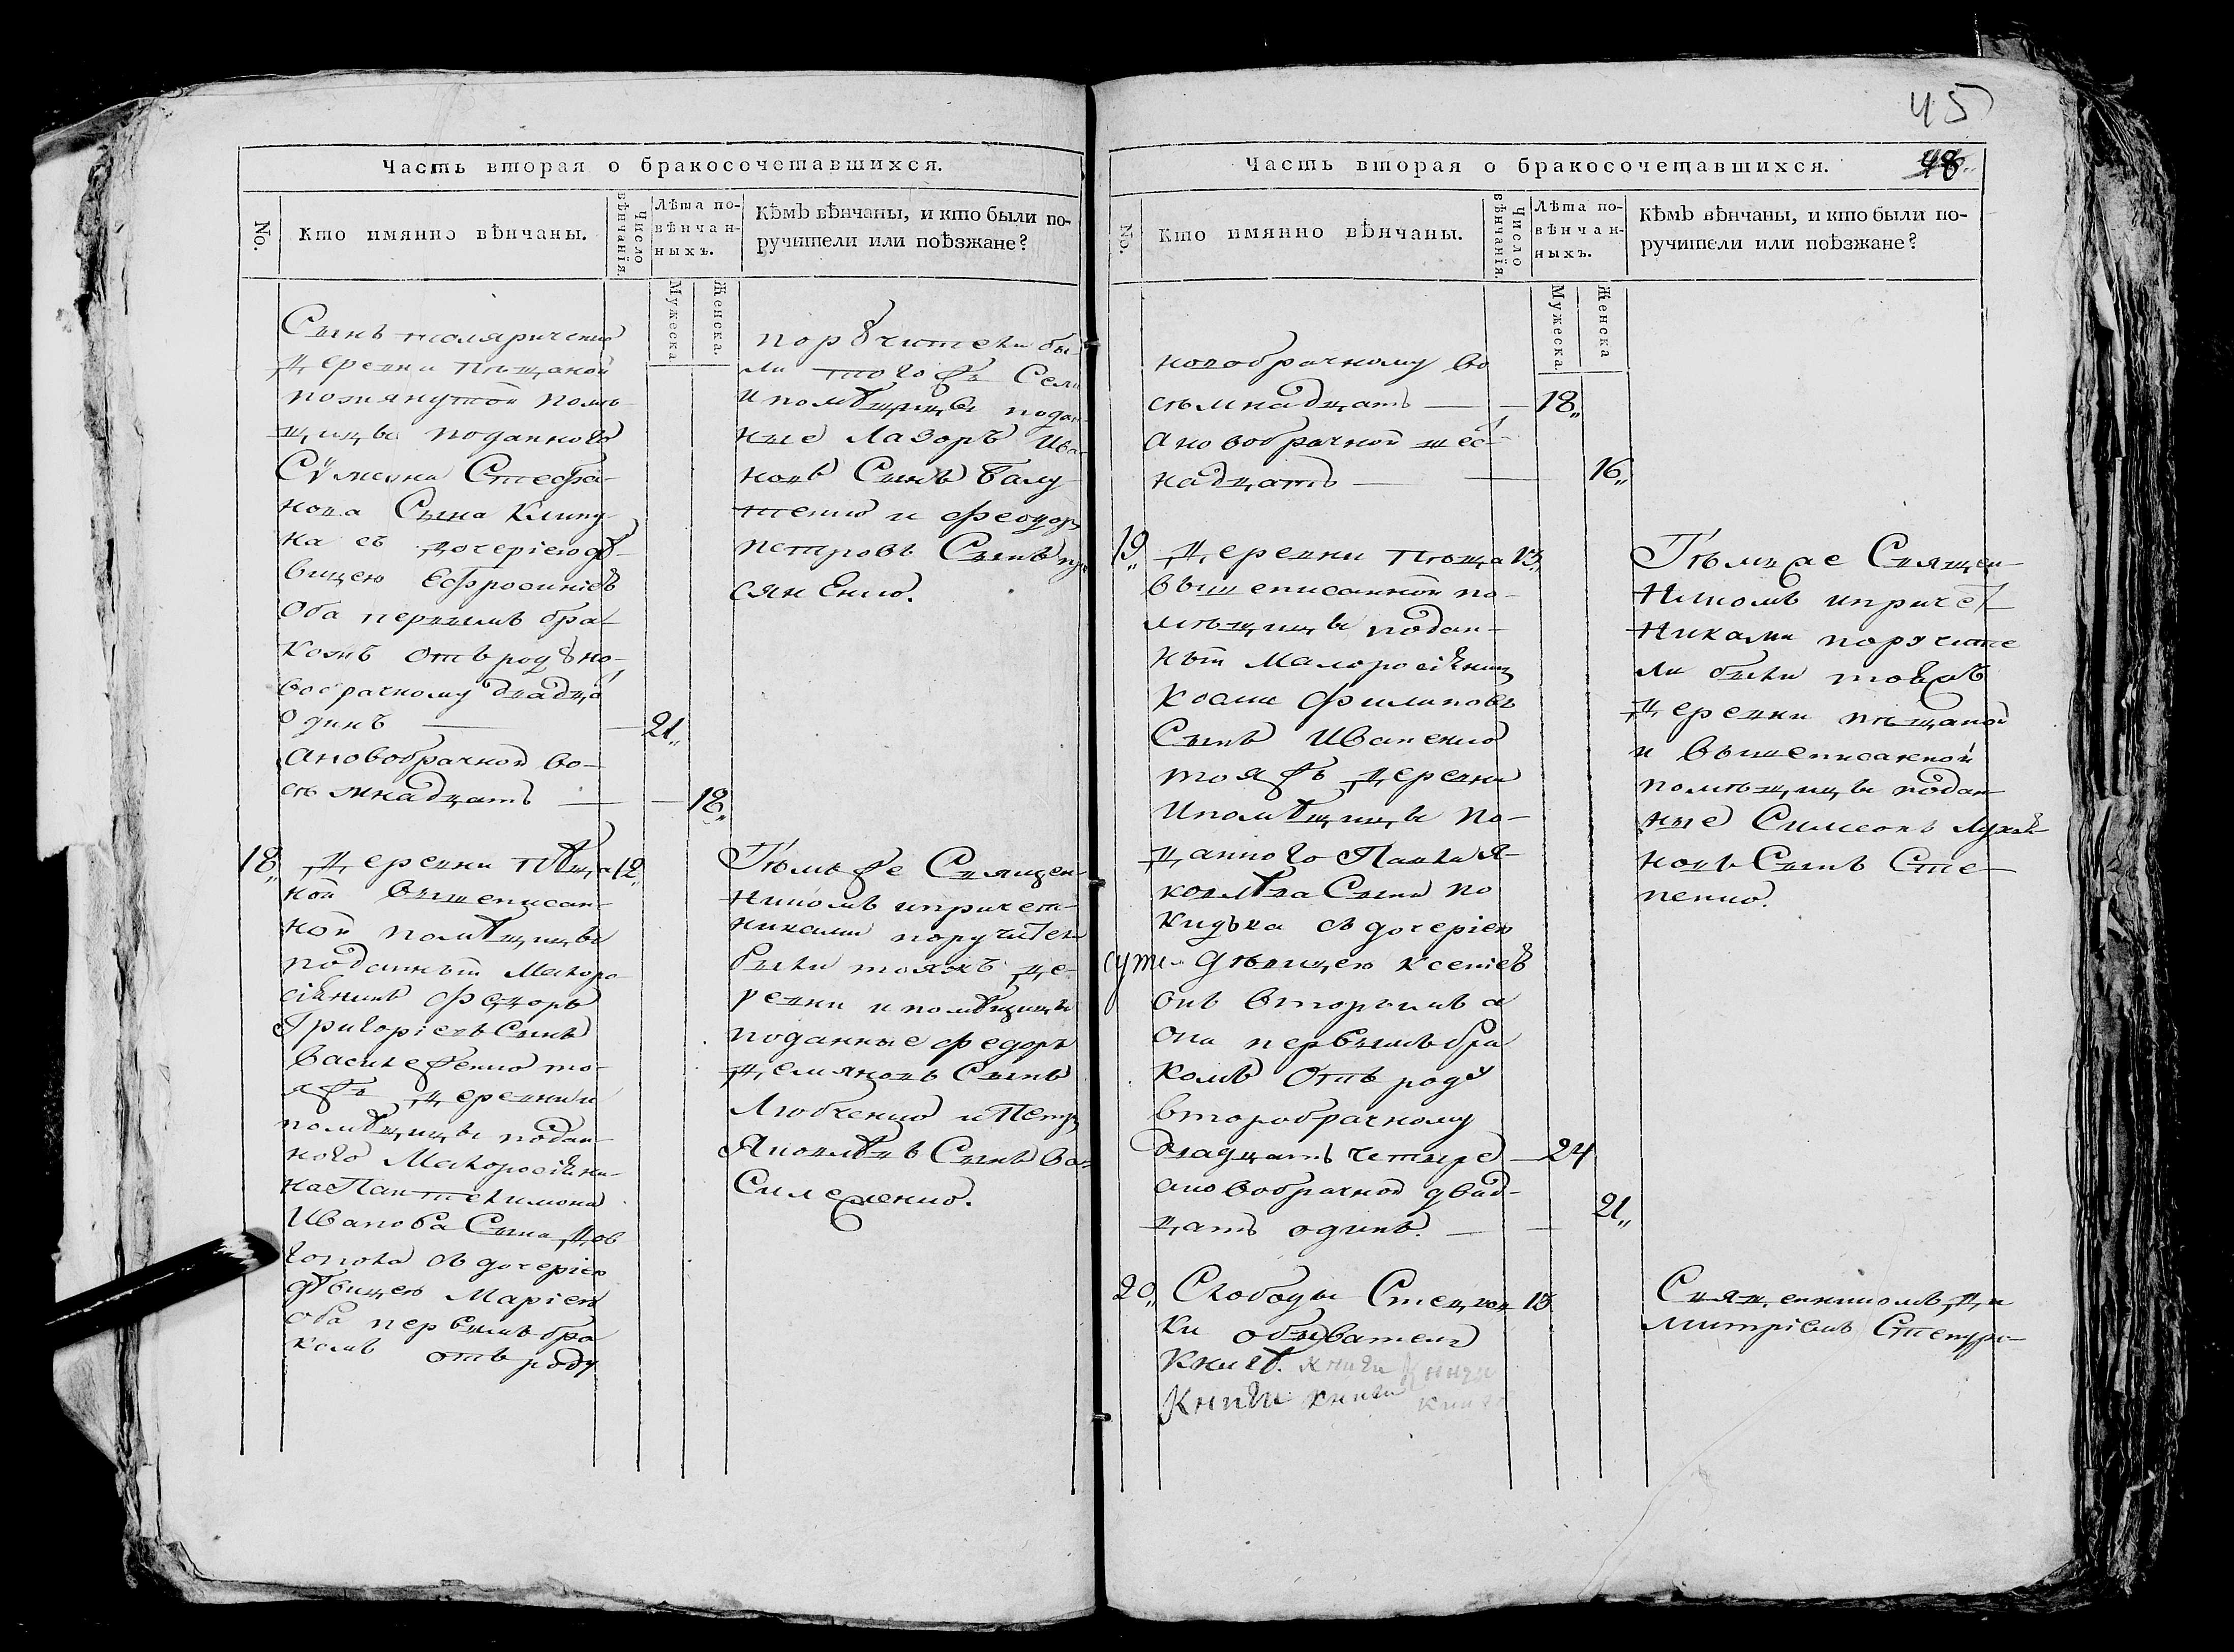 Часть вторая о бракосочетавшихся.
No.
Кто имянно вѣнчаны.
Число вѣнчанія.
Лѣта по-
вѣнчан-
ныхъ.
Мужеска
Женска.
Кѣмъ вѣнчаны, и кто были по-
ручители или поѣзжане?
Сынъ
деревни Пѣщаной
помянутой помѣ-
щицы поданного
Стефа-
нова Сына
на съ дочеріею дѣ-
вицею Ефросиніею
Оба первымъ бра-
комъ отъ роду но-
вобрачному двадца
одинъ — 21„
а новобрачной во-
съмнадцать — 18„
поручители бы-
ли того жъ Села
и помѣщицы подан-
ные Лазоръ Ива-
новъ Сынъ
и Феодоръ
Петровъ Сынъ
18„ Деревни Пѣща 12„
ной вышеписан-
ной помѣщицы
поданный Малоро-
сіянинъ Федоръ
Григоріевъ Сынъ
Василенко то-
яжъ деревни и
помѣщицы подан-
ного Малоросіяни-
на Пантелимона
Иванова Сына
съ дочеріею
дѣвицею Маріею
оба первымъ бра
комъ отъ роду
Тѣмъ же Священ-
никомъ и причет-
никами поручител
были тояжъ де-
ревни и помѣщицы
поданные Федоръ
Демяновъ Сынъ
и Петръ
Яковлевъ Сынъ
45
48
Часть вторая о бракосочетавшихся.
No.
Кто имянно вѣнчаны.
Число вѣнчанія.
Лѣта по-
вѣнчан-
ныхъ.
Мужеска
Женска
Кѣмъ вѣнчаны, и кто были по-
ручители или поѣзжане?
новобрачному во
съмнадцать — 18„
а новобрачной шес-
надцать — 16„
19„ Деревни Пѣща 13„
вышеписанной по-
мѣщицы подан-
ный Малоросіянинъ
Косма Филиповъ
Сынъ Иваненко
тояжъ деревни
и помѣщицы по-
данного Павла Я-
ковлѣва Сына По
съ дочеріею
дѣвицею Ксеніею
онъ вторымъ а
она первымъ бра
комъ Отъ роду
второбрачному
двадцать четыре — 24
а новобрачной двад-
цать одинъ. — 21„
Тѣмже Священ-
никомъ и причет-
никами поручите
ли были тояжъ
деревни Пѣщаной
и вышеписаной
помѣщицы подан
ные Симеонъ
Сынъ Сте-
пенко.
20„ Слободы 13
ки обыватель
Священникомъ Ди
митріемъ
Книгѣ. книги книги
Книги книги книги